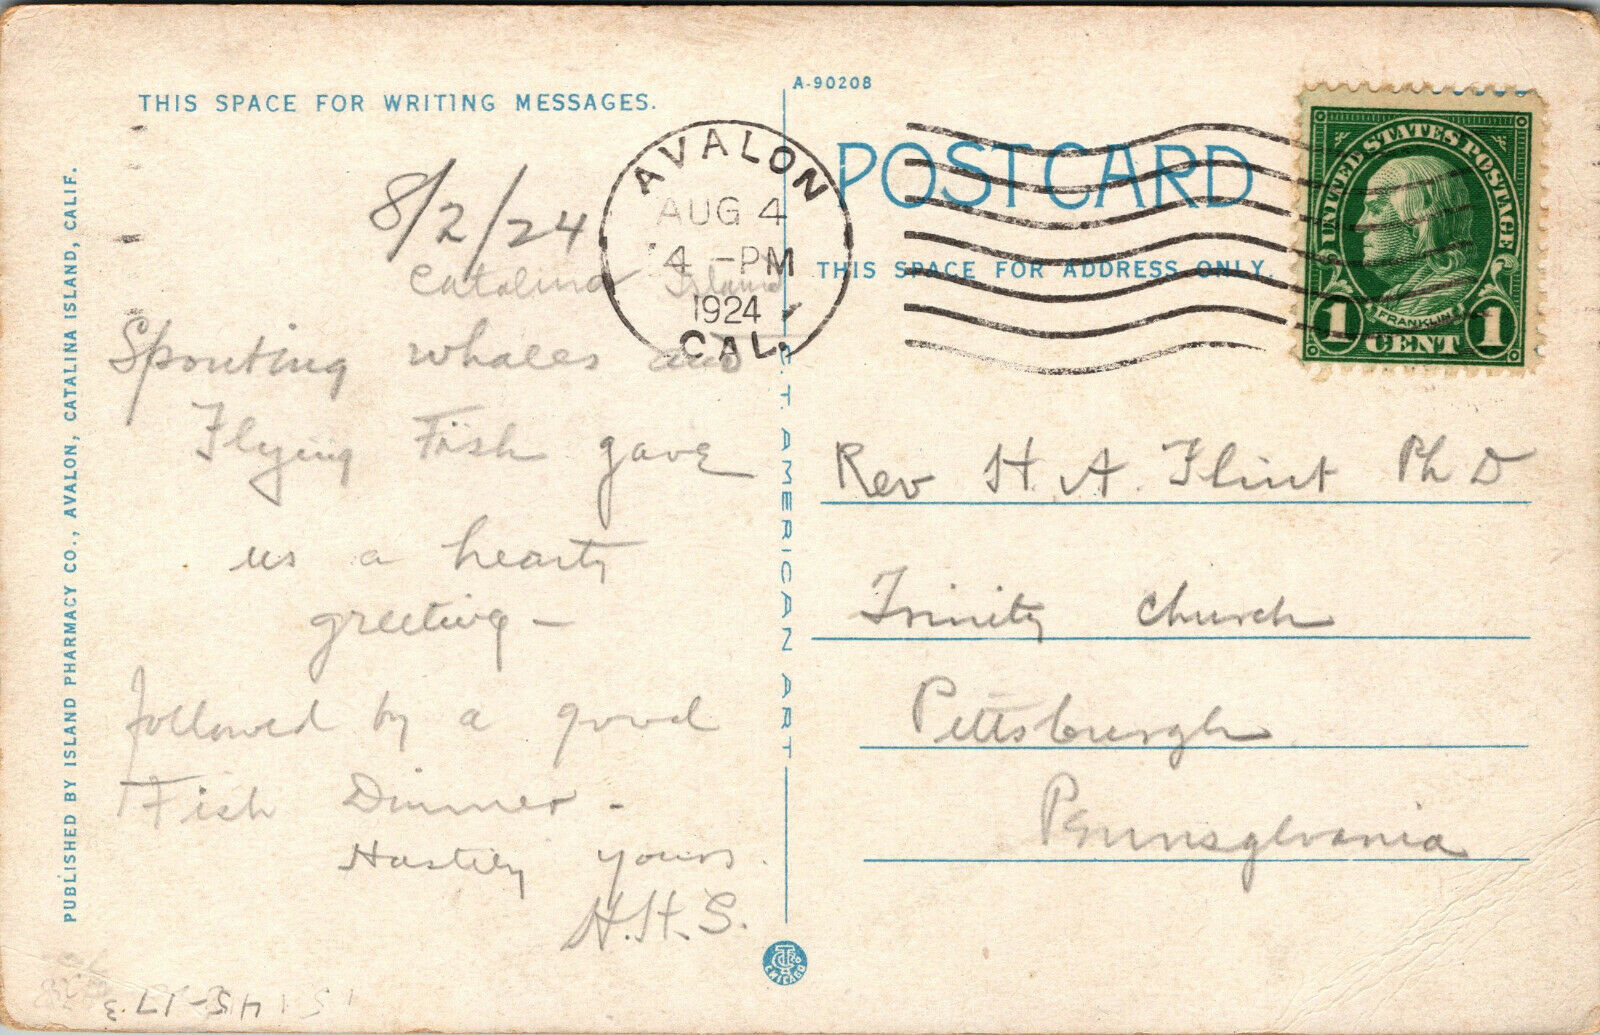 THIS SPACE FOR WRITING MESSAGES.
8/2/24
Catalina Island
Spouting whales and
Flying Fish gave
us a hearty
greeting –
followed by a good
Fish Dinner –
Hastily yours.
H.H.S.
PUBLISHED BY ISLAND PHARMACY CO., AVALON, CATALINA ISLAND, CALIF.
A-90208
POST CARD
THIS SPACE FOR ADDRESS ONLY.
AVALON
AUG 4
4 - PM
1924
CAL.
UNITED STATES POSTAGE
FRANKLIN
1 CENT 1
C.T. AMERICAN ART
Rev H. A. Flint Ph D
Trinity Church
Pittsburgh
Pennsylvania
CHICAGO